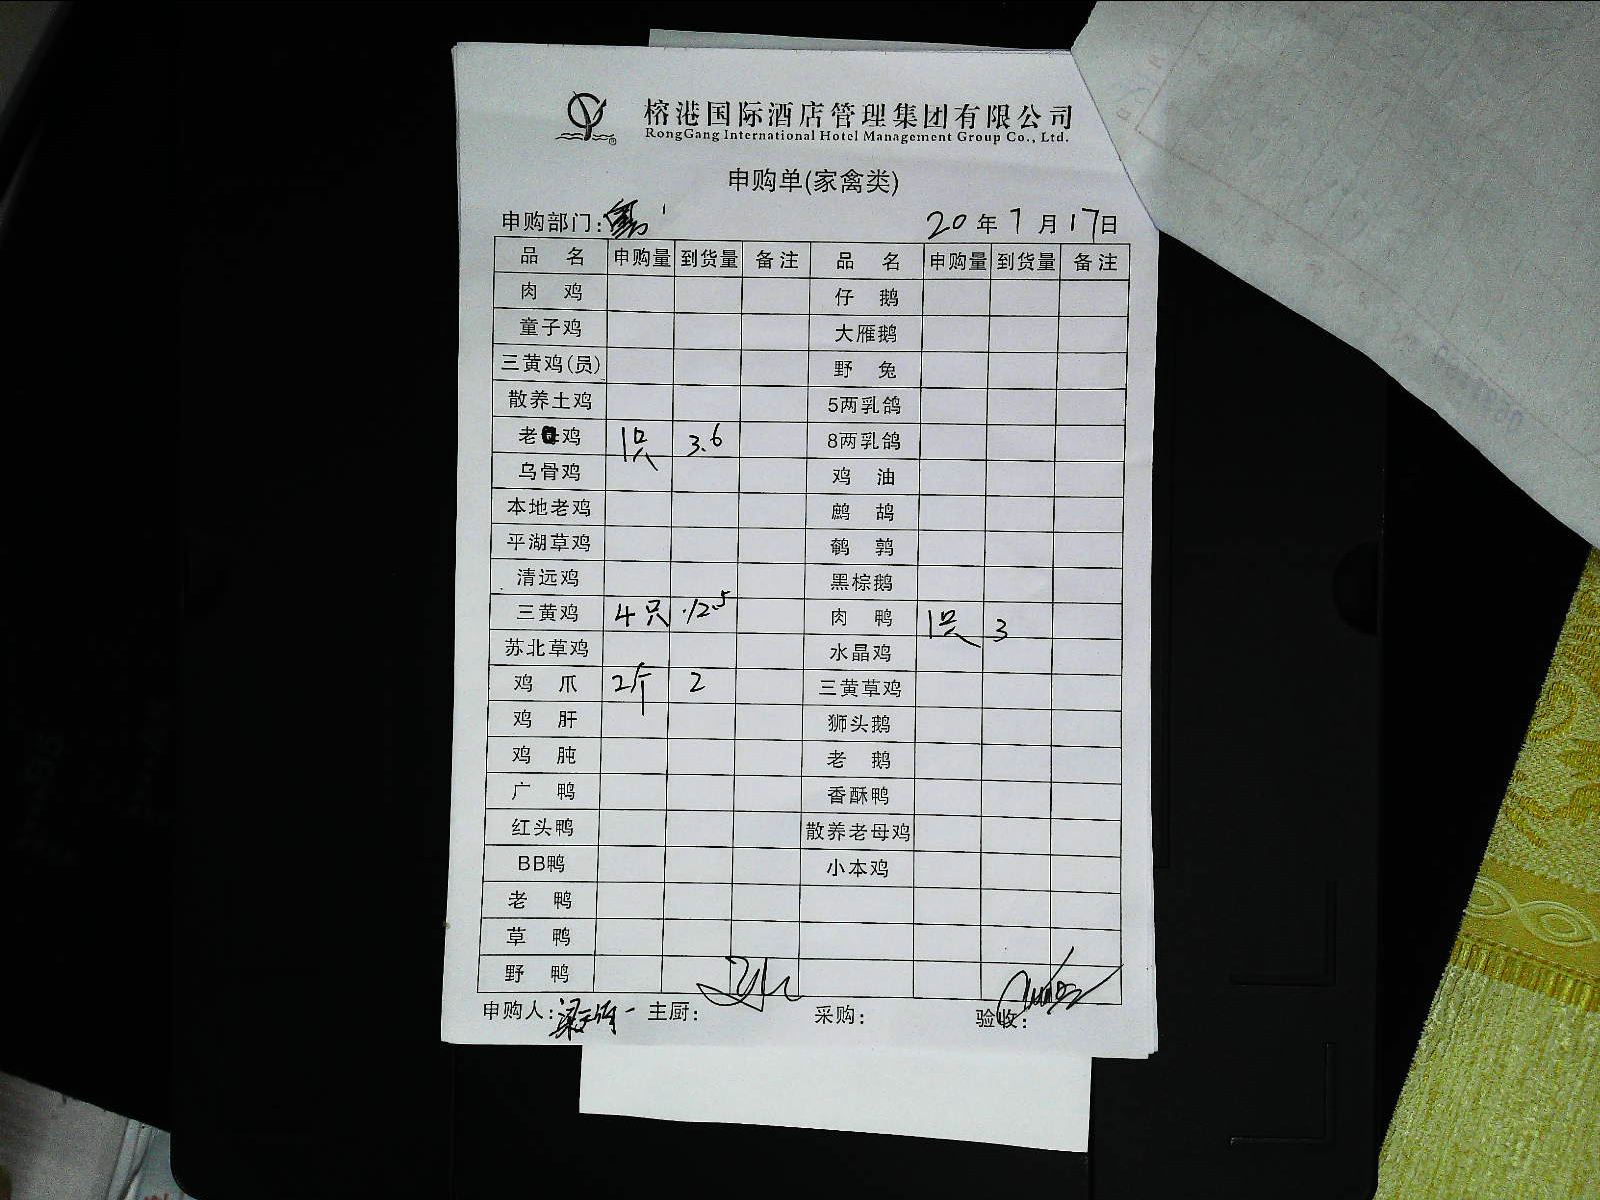 榕港国际酒店管理集团有限公司
RongGang International Hotel Management Group Co., Ltd.
申购单(家禽类)
申购部门: 20 年 7 月 17 日
品 名 申购量 到货量 备注 品 名 申购量 到货量 备注
肉 鸡 仔 鹅
童子鸡 大雁鹅
三黄鸡(员) 野 兔
散养土鸡 5两乳鸽
老母鸡 1只 3.6 8两乳鸽
乌骨鸡 鸡 油
本地老鸡 鹧 鸪
平湖草鸡 鹌 鹑
清远鸡 黑棕鹅
三黄鸡 4只 12.5 肉 鸭 1只 3
苏北草鸡 水晶鸡
鸡 爪 2个 2 三黄草鸡
鸡 肝 狮头鹅
鸡 肫 老 鹅
广 鸭 香酥鸭
红头鸭 散养老母鸡
BB鸭 小本鸡
老 鸭
草 鸭
野 鸭
申购人: 主厨: 采购: 验收: